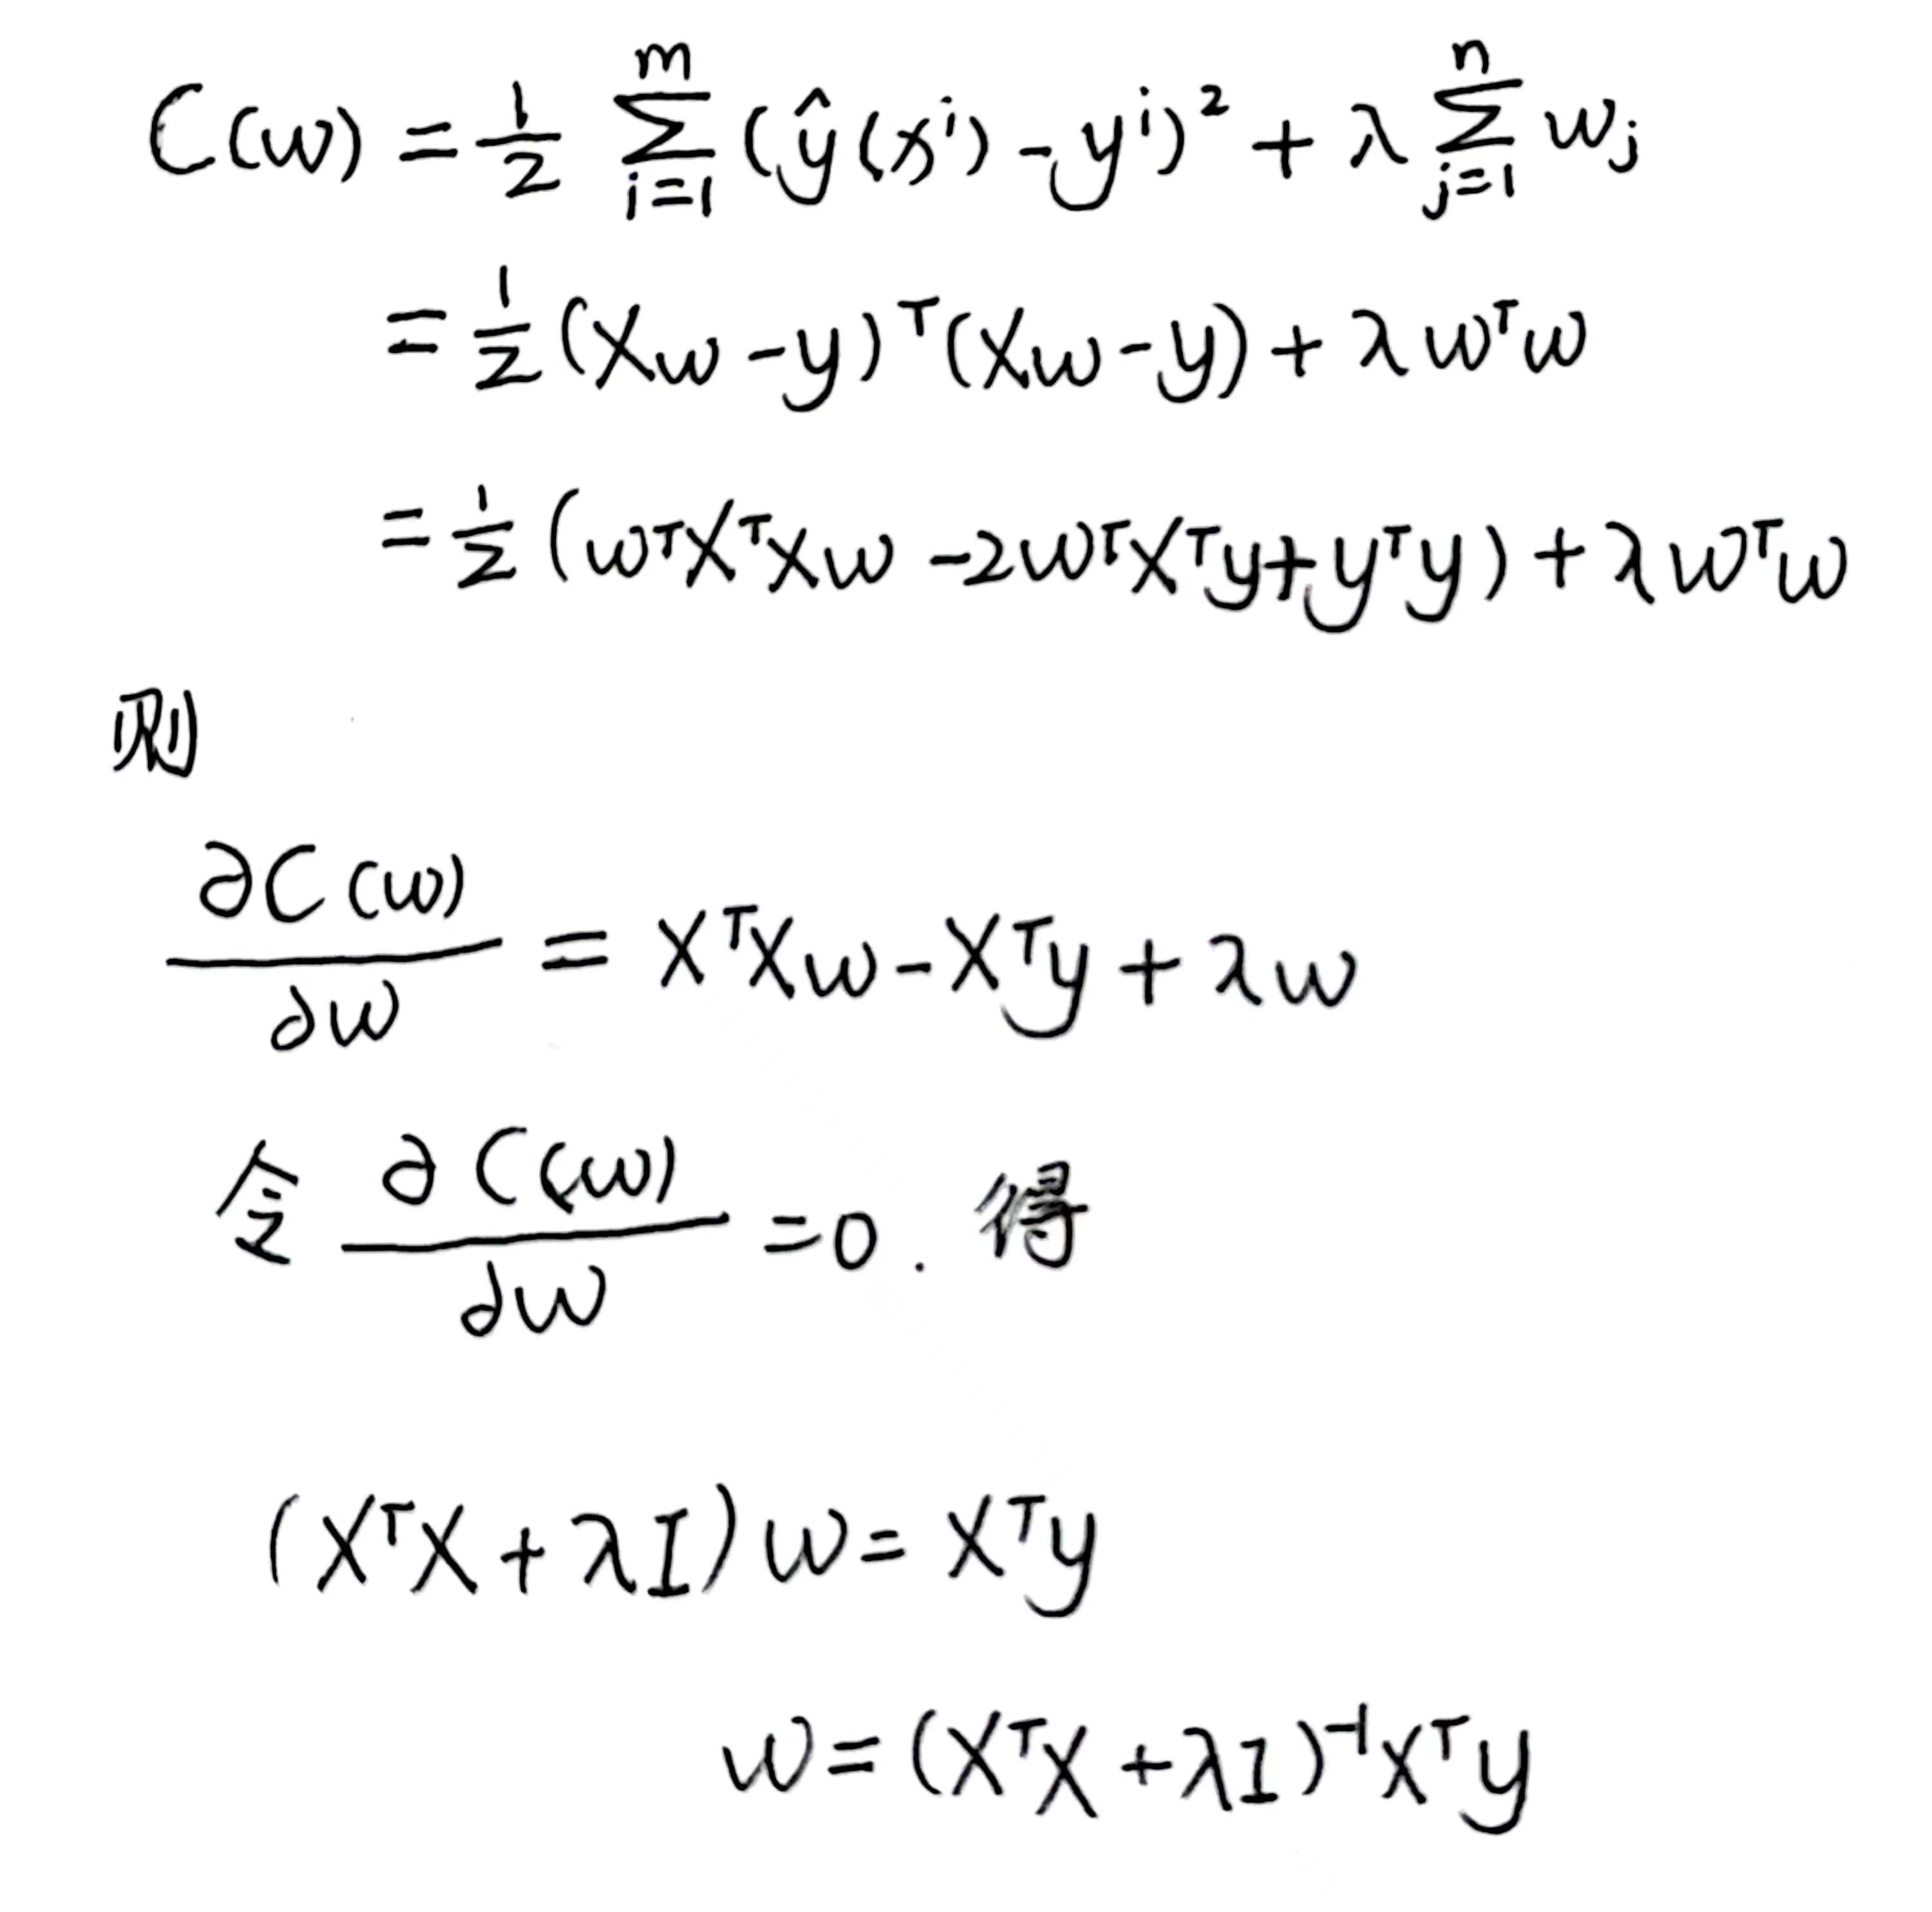 C(w) = 1/2 ∑_{i=1}^{m} (ŷ(x^i) - y^i)² + λ ∑_{j=1}^{n} w_j
= 1/2 (Xw - y)^T (Xw - y) + λw^Tw
= 1/2 (w^TX^TXw - 2w^TX^Ty + y^Ty) + λw^Tw
则
∂C(w)/∂w = X^TXw - X^Ty + λw
令 ∂C(w)/∂w = 0. 得
(X^TX + λI)w = X^Ty
w = (X^TX + λI)^{-1}X^Ty